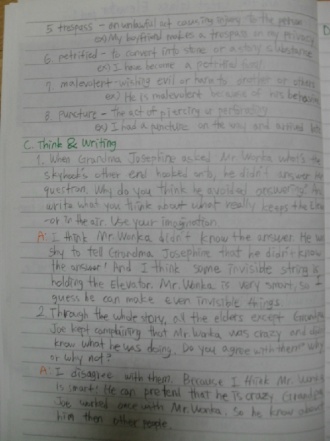 5. trespass - an unlawful act causing injury to the person
ex) My boyfriend makes a trespass on my privacy
6. petrified - to convert into stone or a stony substance
ex) I have become a petrified
7. malevolent - wishing evil or harm to another or others
ex) He is malevolent because of his
8. puncture - The act of piercing or perforating
ex) I had a puncture on the way and
C. Think & Writing
1. When Grandma Josephine asked Mr. Wonka what's the
skyhook's other end hooked onto, he didn't answer
question. Why do you think he avoided answering?
write what you think about what really keeps the
-or in the air. Use your imagination
A: I think Mr. Wonka didn't know the answer. He
shy to tell Grandma Josephine that he didn't know
the answer! And I think some invisible string is
holding the Elevator. Mr. Wonka is very smart, so I
guess he can make even invisible things.
2. Through the whole story, all the elders except Grandpa
Joe kept complaining that Mr. Wonka was crazy and
know what he was doing. Do you agree with them? Why
or why not?
A: I disagree with them. Because I think Mr. Wonka
is smart! He can pretend that he is crazy. Grandpa
Joe worked once with Mr. Wonka. So he know about
him then other people.